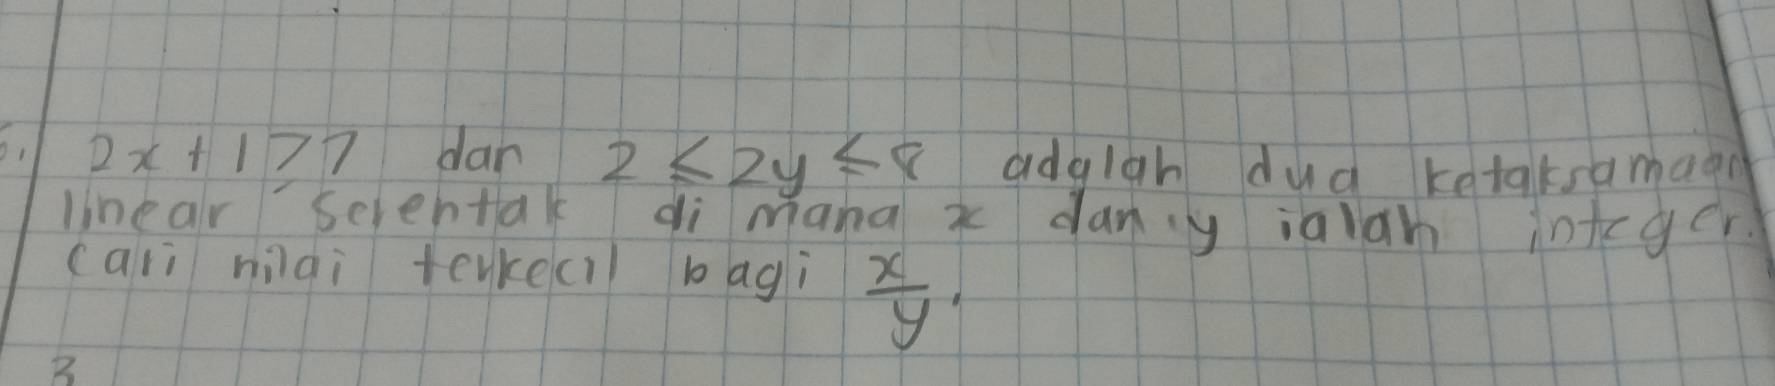 2x + 1 ≥ 7 dan 2 ≤ 2y ≤ 8 adalah dua ketaksamaan
linear serentak di mana x dan y ialah integer.
cari nilai terkecil bagi x/y.
3